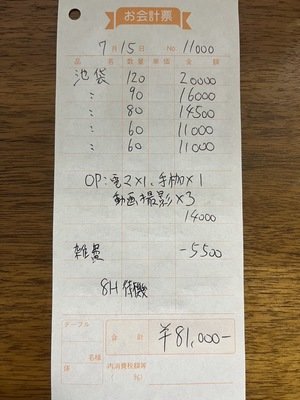 お会計票
7月15日 No. 11000
品名 数量 単価 金額
池袋 120 20000
〃 90 16000
〃 80 14500
〃 60 11000
〃 60 11000
OP:電マ×1、手枷×1
動画撮影×3
14000
雑費 -5500
8H待機
テーブル
名様
係
合計 ¥81,000-
内消費税額等
( %)